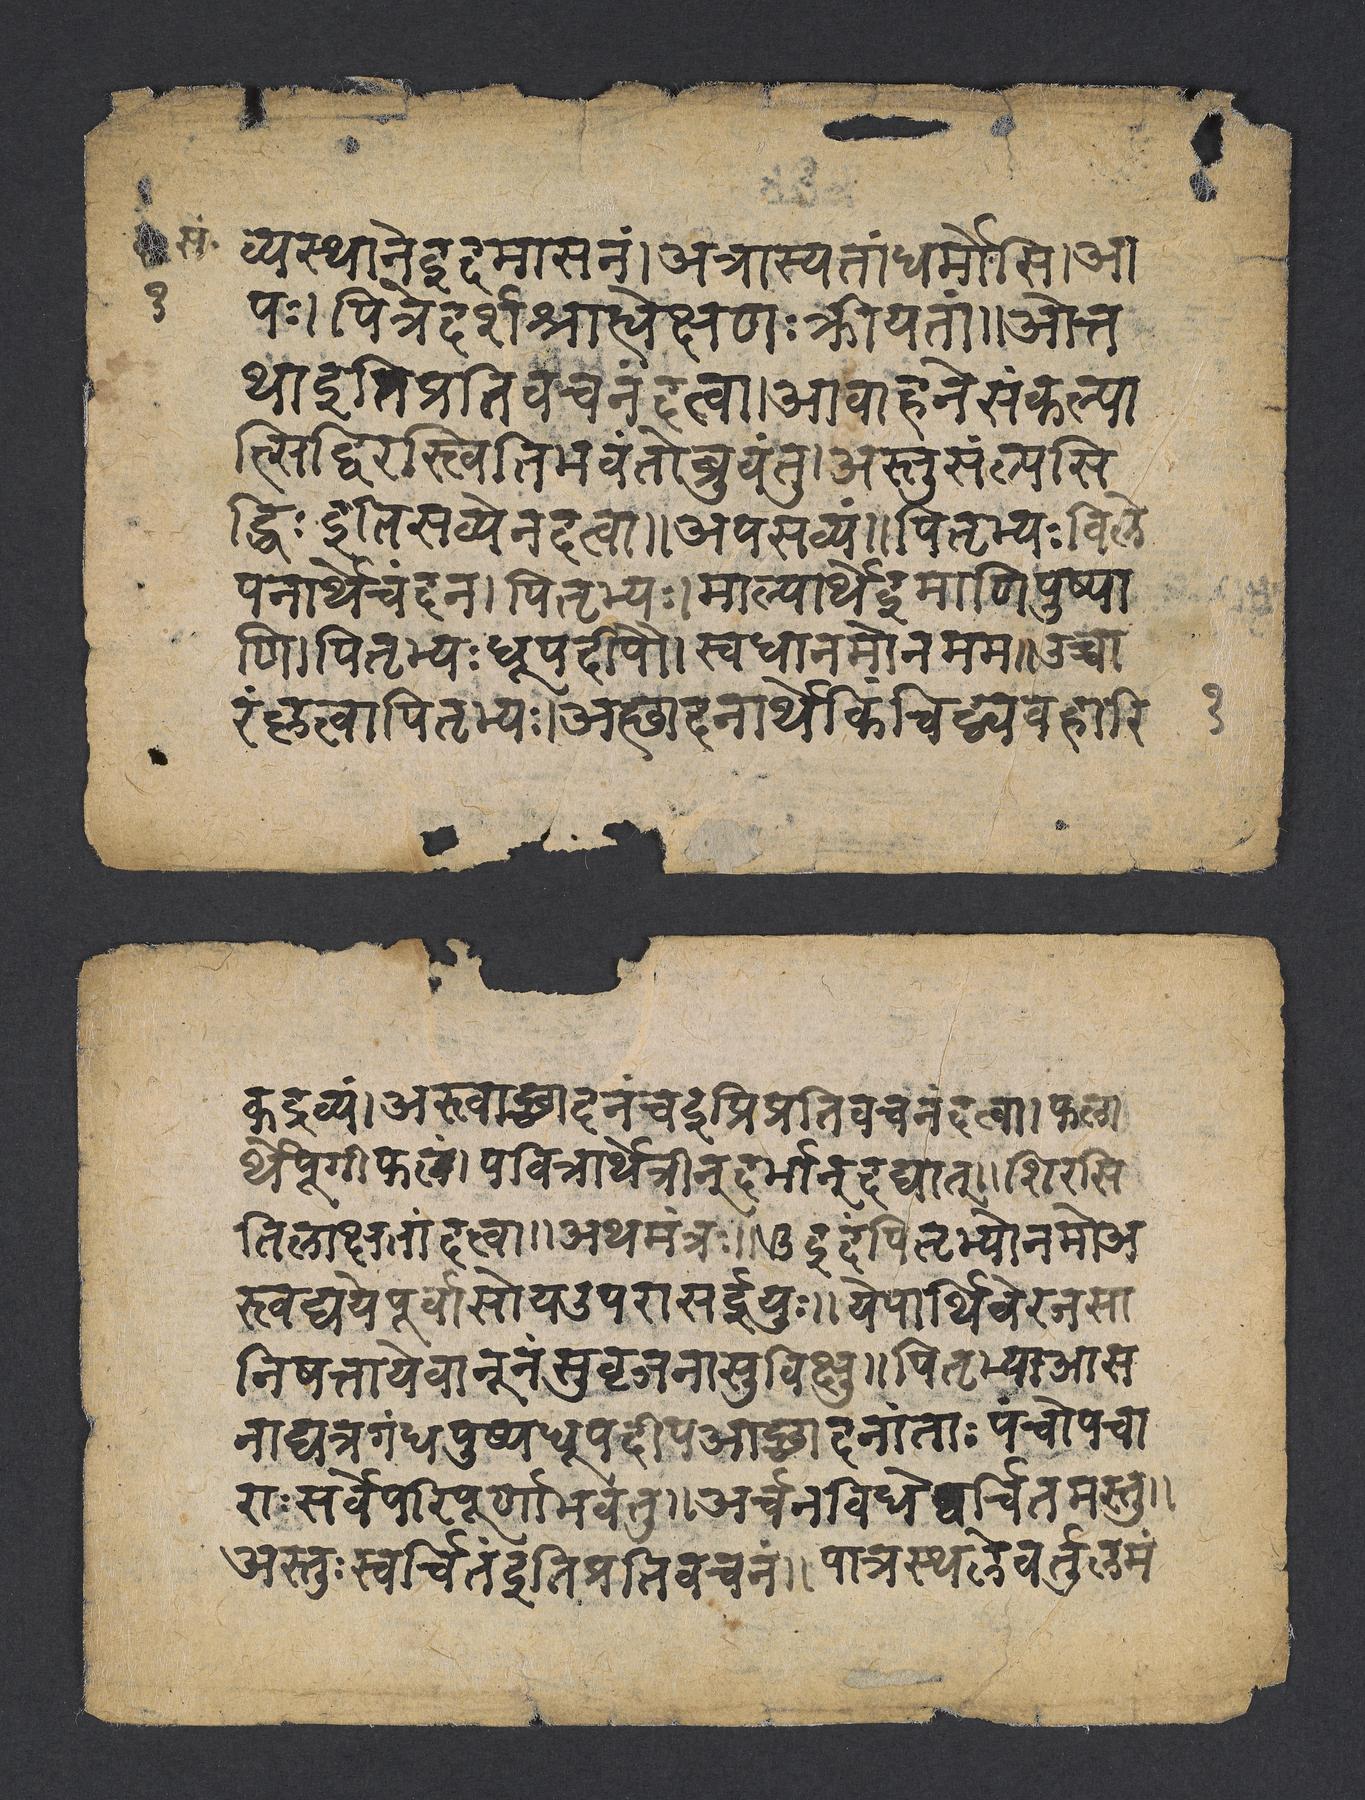 सं॰ व्यस्थानेइदमासनं। अत्रास्यतांधर्मोसि। आ
१ पः। पित्रेदर्शश्राद्धेक्षणःक्रीयतां॥ ओंत
थाइतिप्रतिवचनंदत्वा। आवाहनेसंकल्पा
त्सिद्धिरस्त्वितिभवंतोब्रुवंतु। अस्तुसंल्पसि
द्धिः इतिसव्येनदत्वा॥ अपसव्यं॥ पितृभ्यःविले
पनार्थेचंदन। पितृभ्यः। माल्यार्थेइमाणिपुष्पा
णि। पितृभ्यःधूपदीपौ। स्वधानमोनमम॥ उच्चा
रंकृत्वापितृभ्यः। अछादनार्थेकिंचिद्व्यवहारि १
कद्रव्यं। अस्त्वाछादनंचइप्रिप्रतिवचनंदत्वा। फला
र्थेपूगीफलं। पवित्रार्थेत्रीन्दर्भान्दद्यात्॥ शिरसि
तिलाक्षतांदत्वा॥ अथमंत्रः॥ इदंपितृभ्योनमोअ
स्त्वद्ययेपूर्वासोयउपरासईयुः॥ येपार्थिवेरजसा
निषत्तायेवानूनंसुवृजनासुविक्षु॥ पितृभ्याआस
नाद्यत्रगंधपुष्पधूपदीपआछादनांताः पंचोपचा
राःसर्वेपरिपूर्णाभवंतु॥ अर्चनविधेस्वर्चितमस्तु॥
अस्तुःस्वर्चितंइतिप्रतिवचनं॥ पात्रस्थलेवर्तुलमं